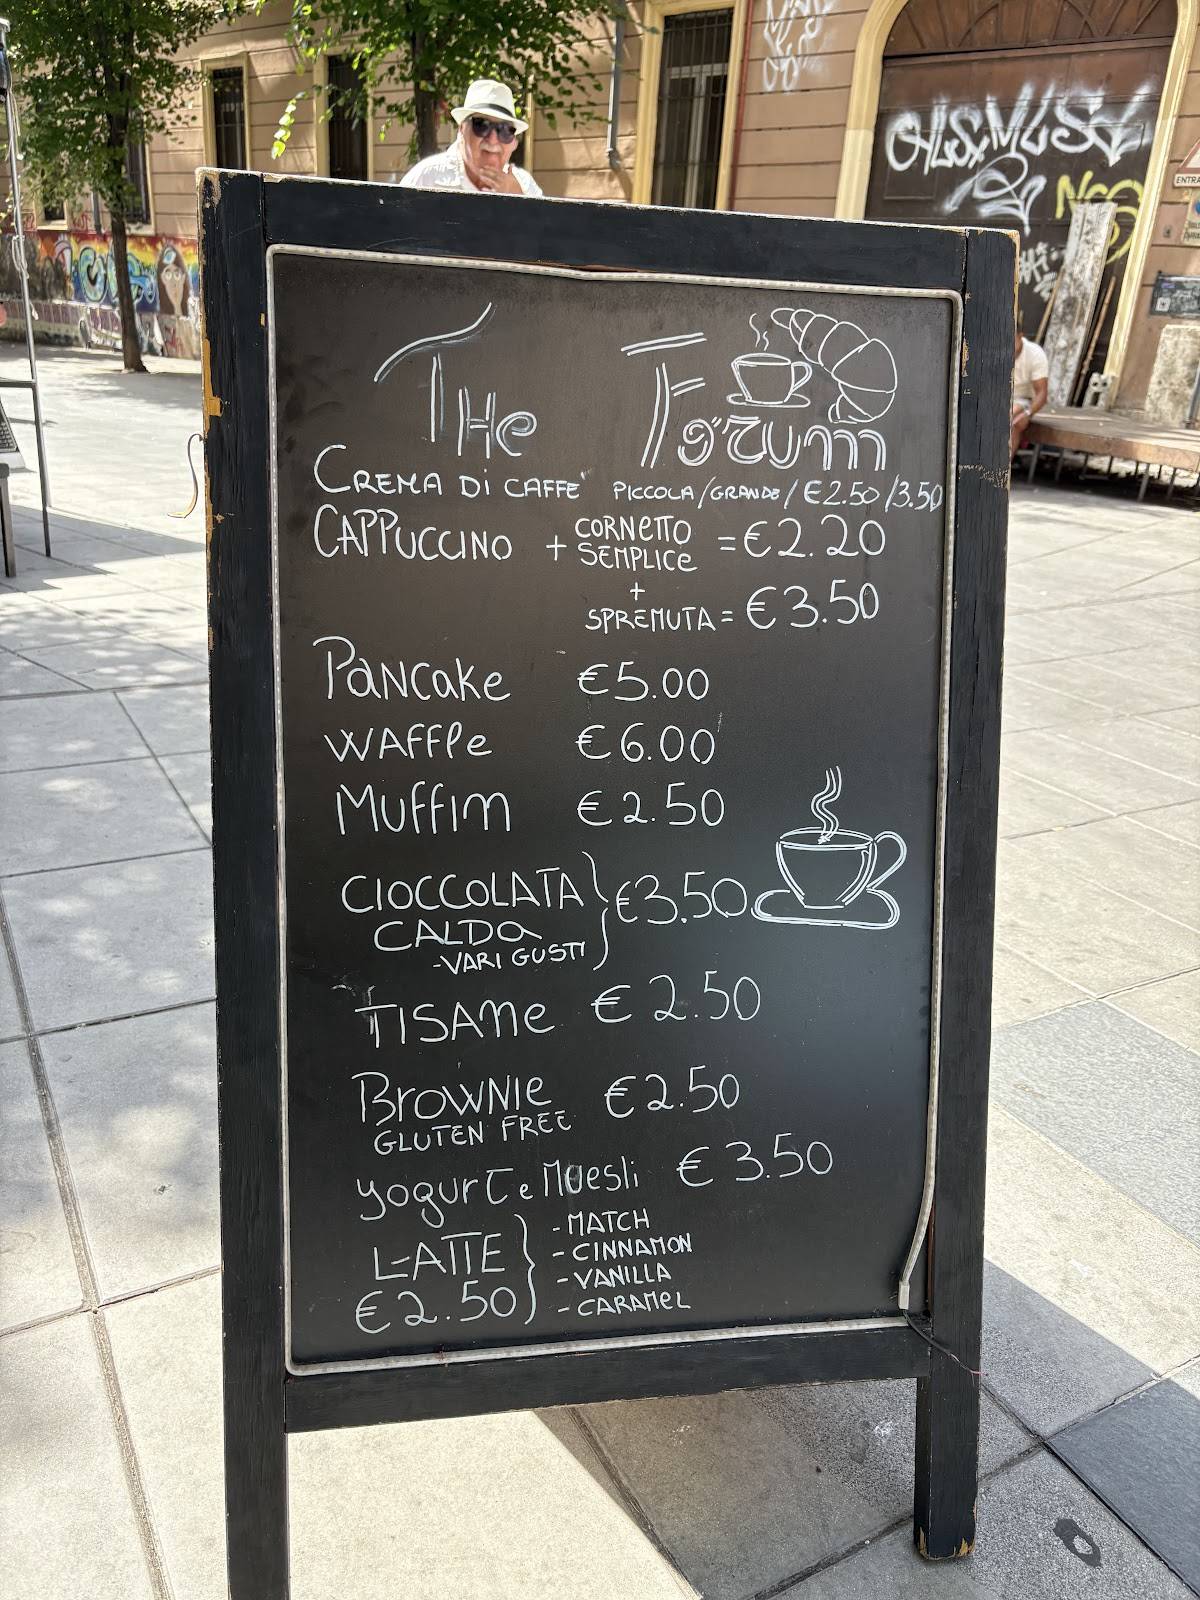 THe Forum
CREMA Di CAFFE' PICCOLA/GRANDE/€2.50/3.50
CAPPUCCINO + CORNETTO SEMPLICE = €2.20
+
SPREMUTA = €3.50
PANCake €5.00
WAFFLe €6.00
MUFFIM €2.50
CIOCCOLATA
CALDa } €3.50
-VARI GUSTI
TISANe € 2.50
BroWNIe €2.50
GLUTEN FREE
yogurt e Muesli € 3.50
LATTE } - MATCH
€2.50 - CINNAMON
- VANILLA
- CARAMeL
ENTRA